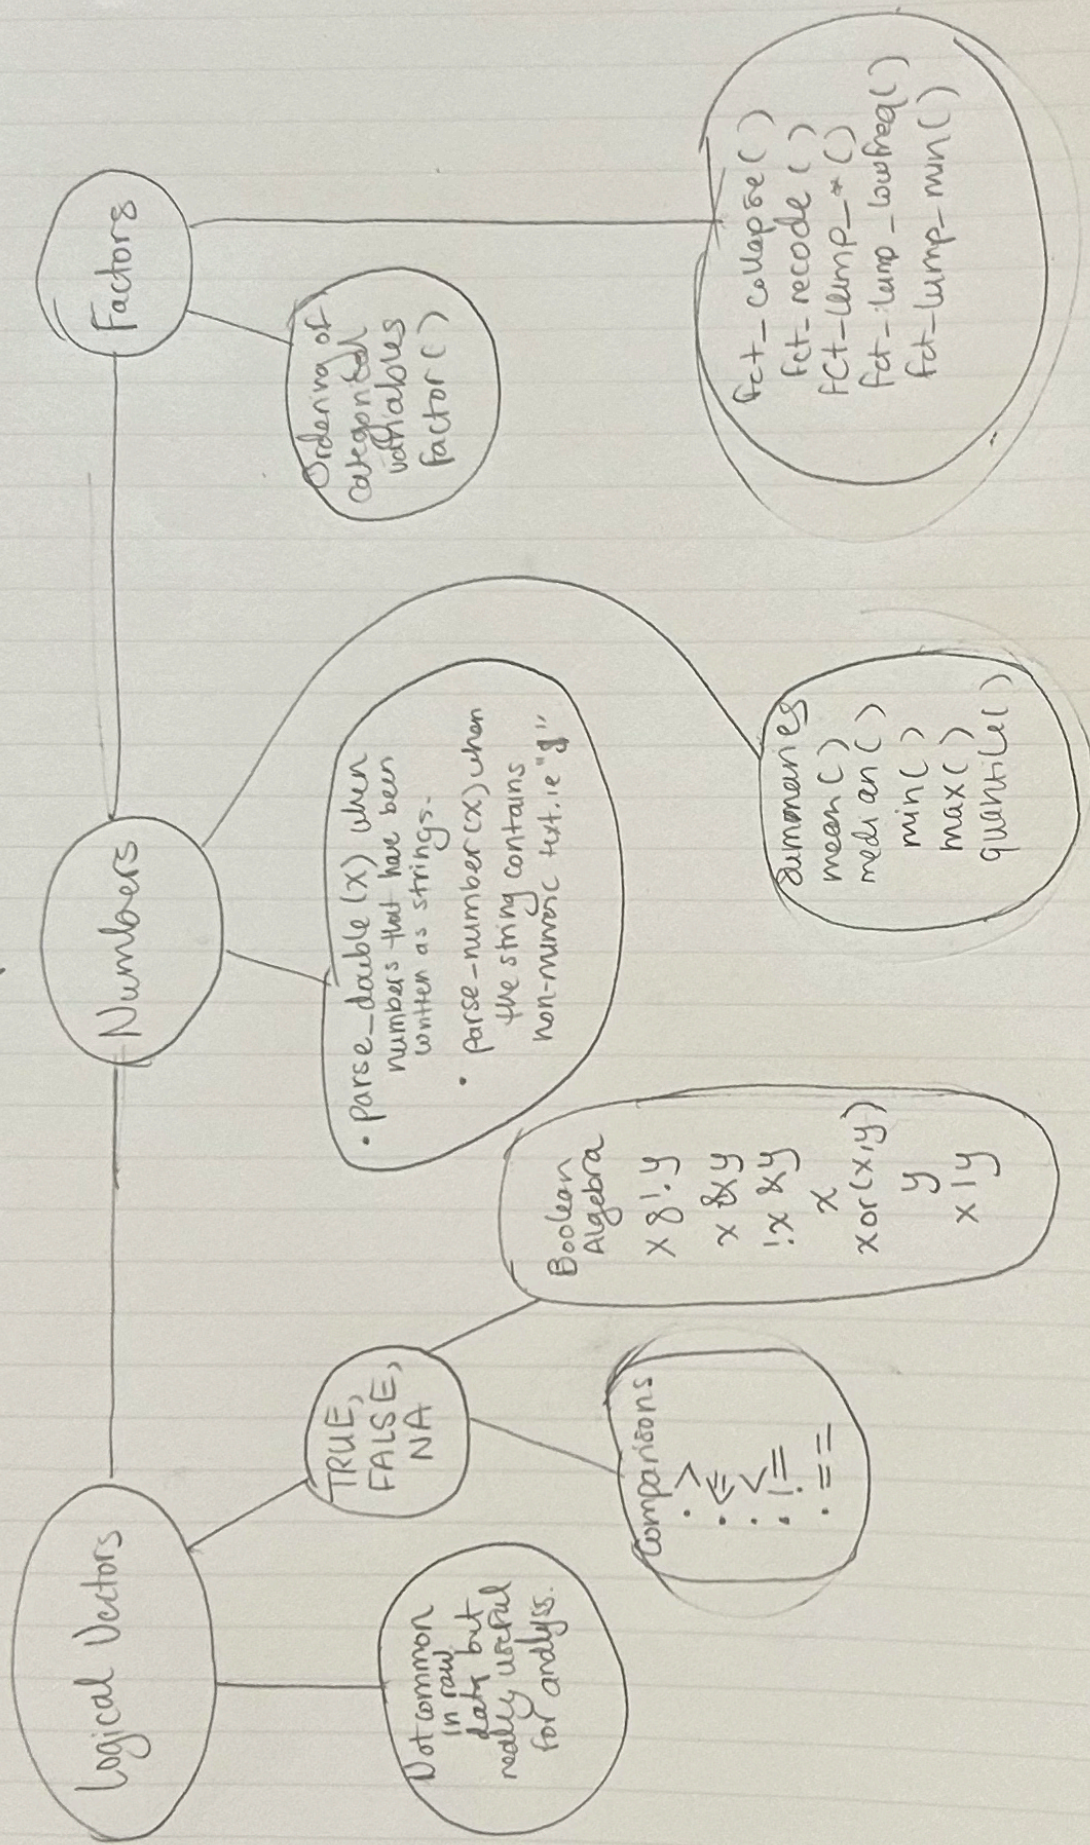 Logical Vectors
Not common
in raw
data but
really useful
for analysis.
TRUE,
FALSE,
NA
Comparisons
• >
• <=
• <
• !=
• ==
Boolean
Algebra
x & !y
x & y
!x & y
x
xor(x,y)
y
x | y
Numbers
• parse_double (x) when
numbers that have been
written as strings.
• parse-number(x) when
the string contains
non-numeric text. ie "$"
Summaries
mean( )
median( )
min( )
max( )
quantile( )
Factors
Ordering of
categorical
variables
factor( )
fct_collapse( )
fct_recode( )
fct_lump_*( )
fct_lump_lowfreq( )
fct_lump_min( )